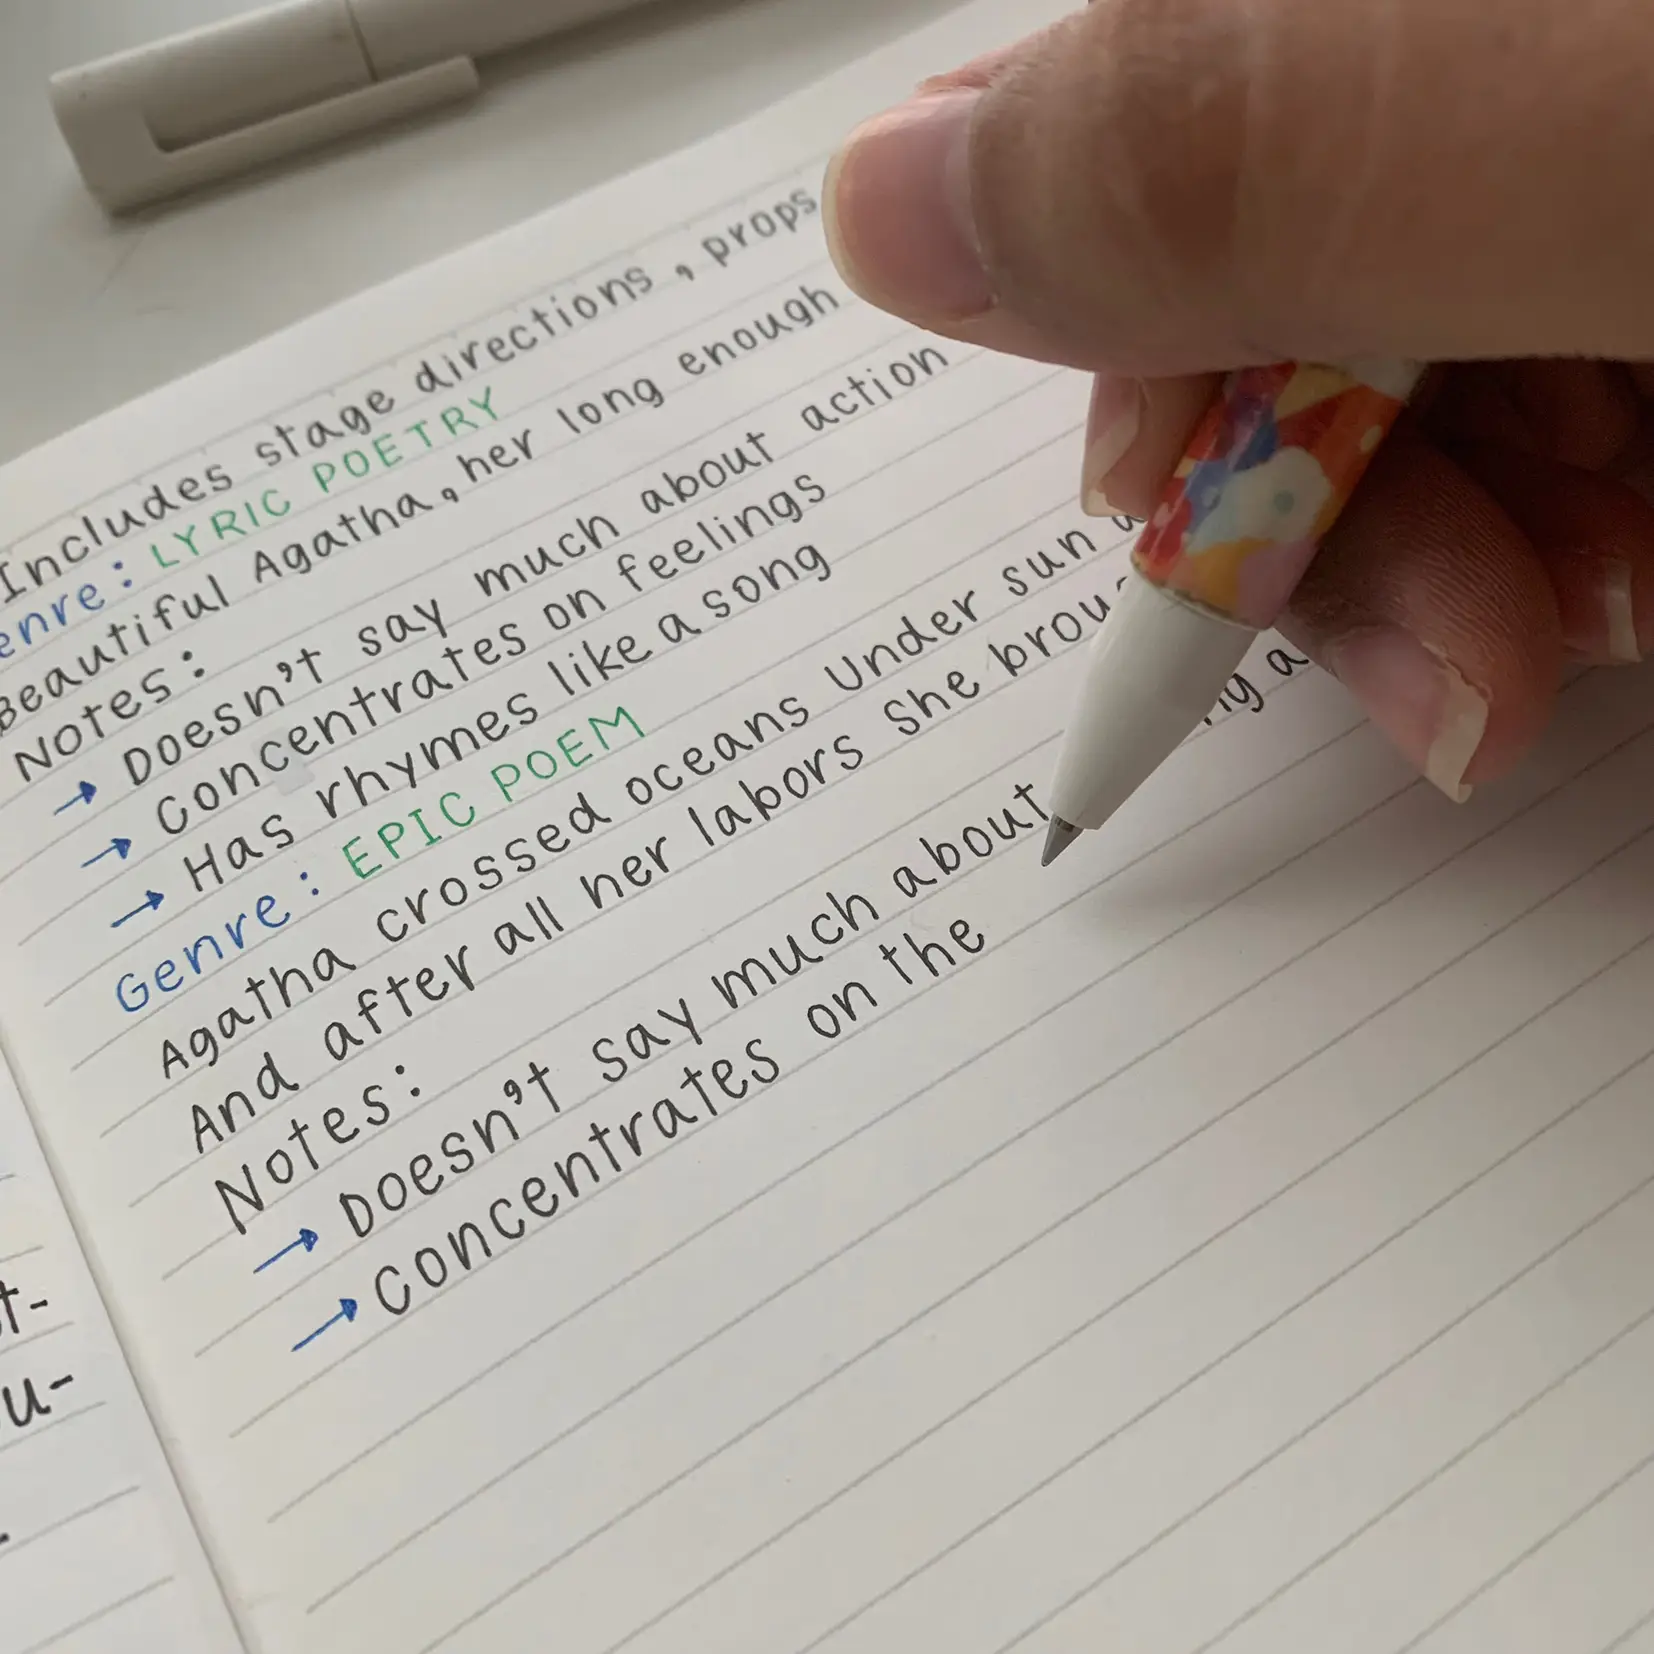 Includes stage directions, props
enre: LYRIC POETRY
Beautiful Agatha, her long enough
Notes:
→ Doesn't say much about action
→ Concentrates on feelings
→ Has rhymes like a song
Genre: EPIC POEM
Agatha crossed oceans Under sun a
And after all her labors She broug
Notes:
→ Doesn't say much about
→ Concentrates on the
t-
u-